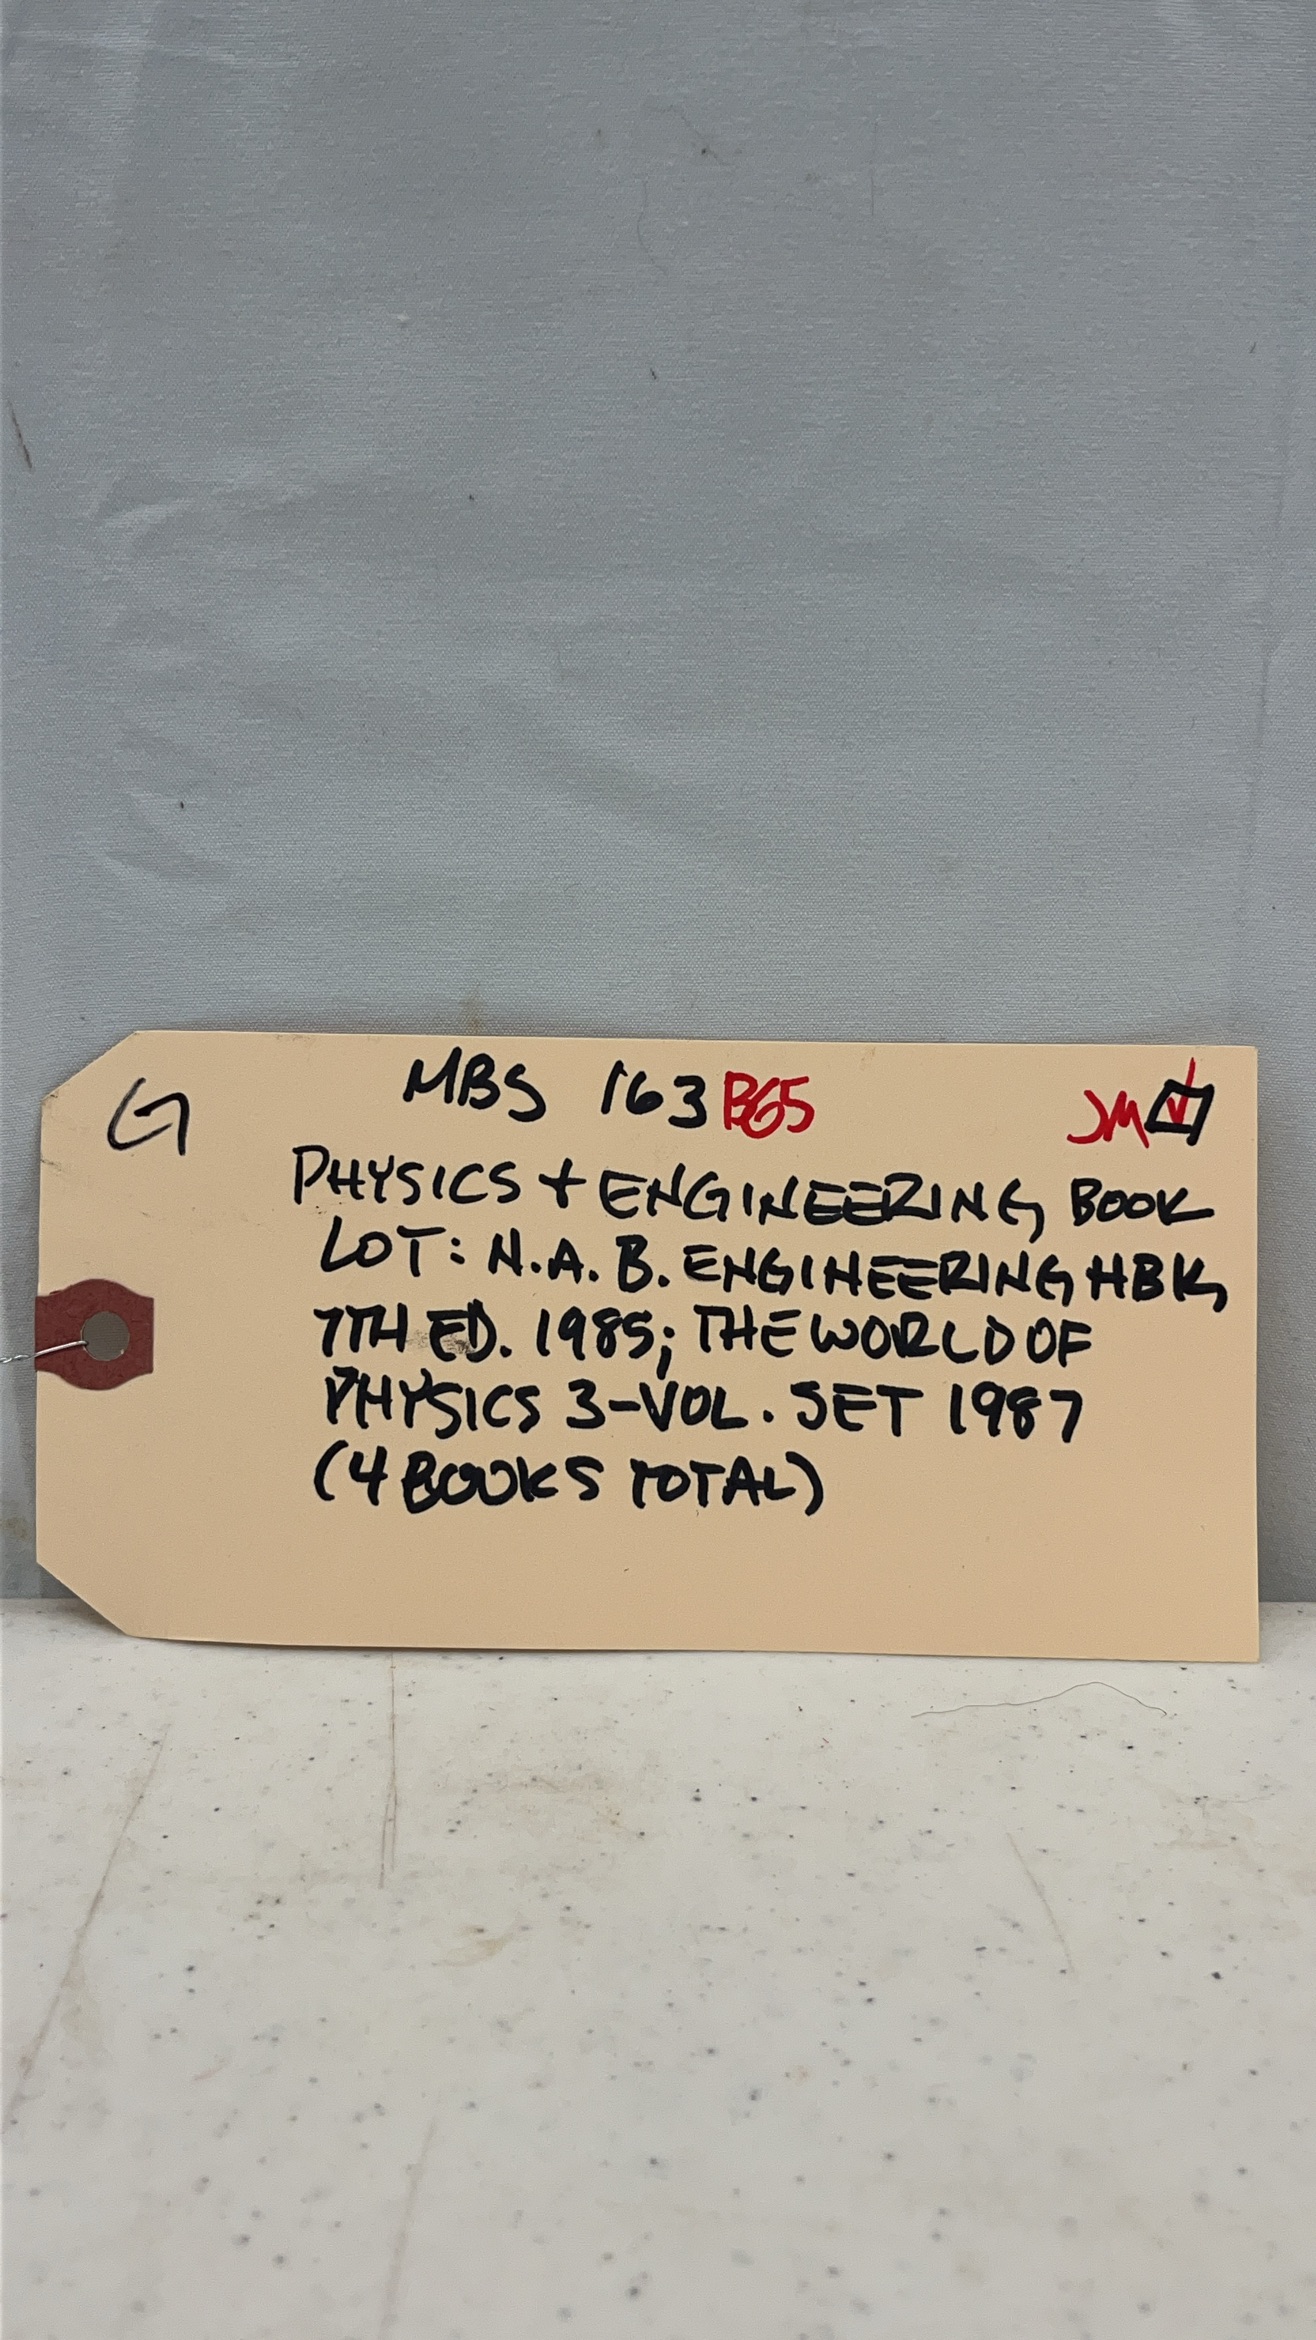 G
MBS 163 BG5 JM
PHYSICS + ENGINEERING BOOK
LOT: N.A.B. ENGINEERING HBK,
7TH ED. 1985; THE WORLD OF
PHYSICS 3-VOL. SET 1987
(4 BOOKS TOTAL)